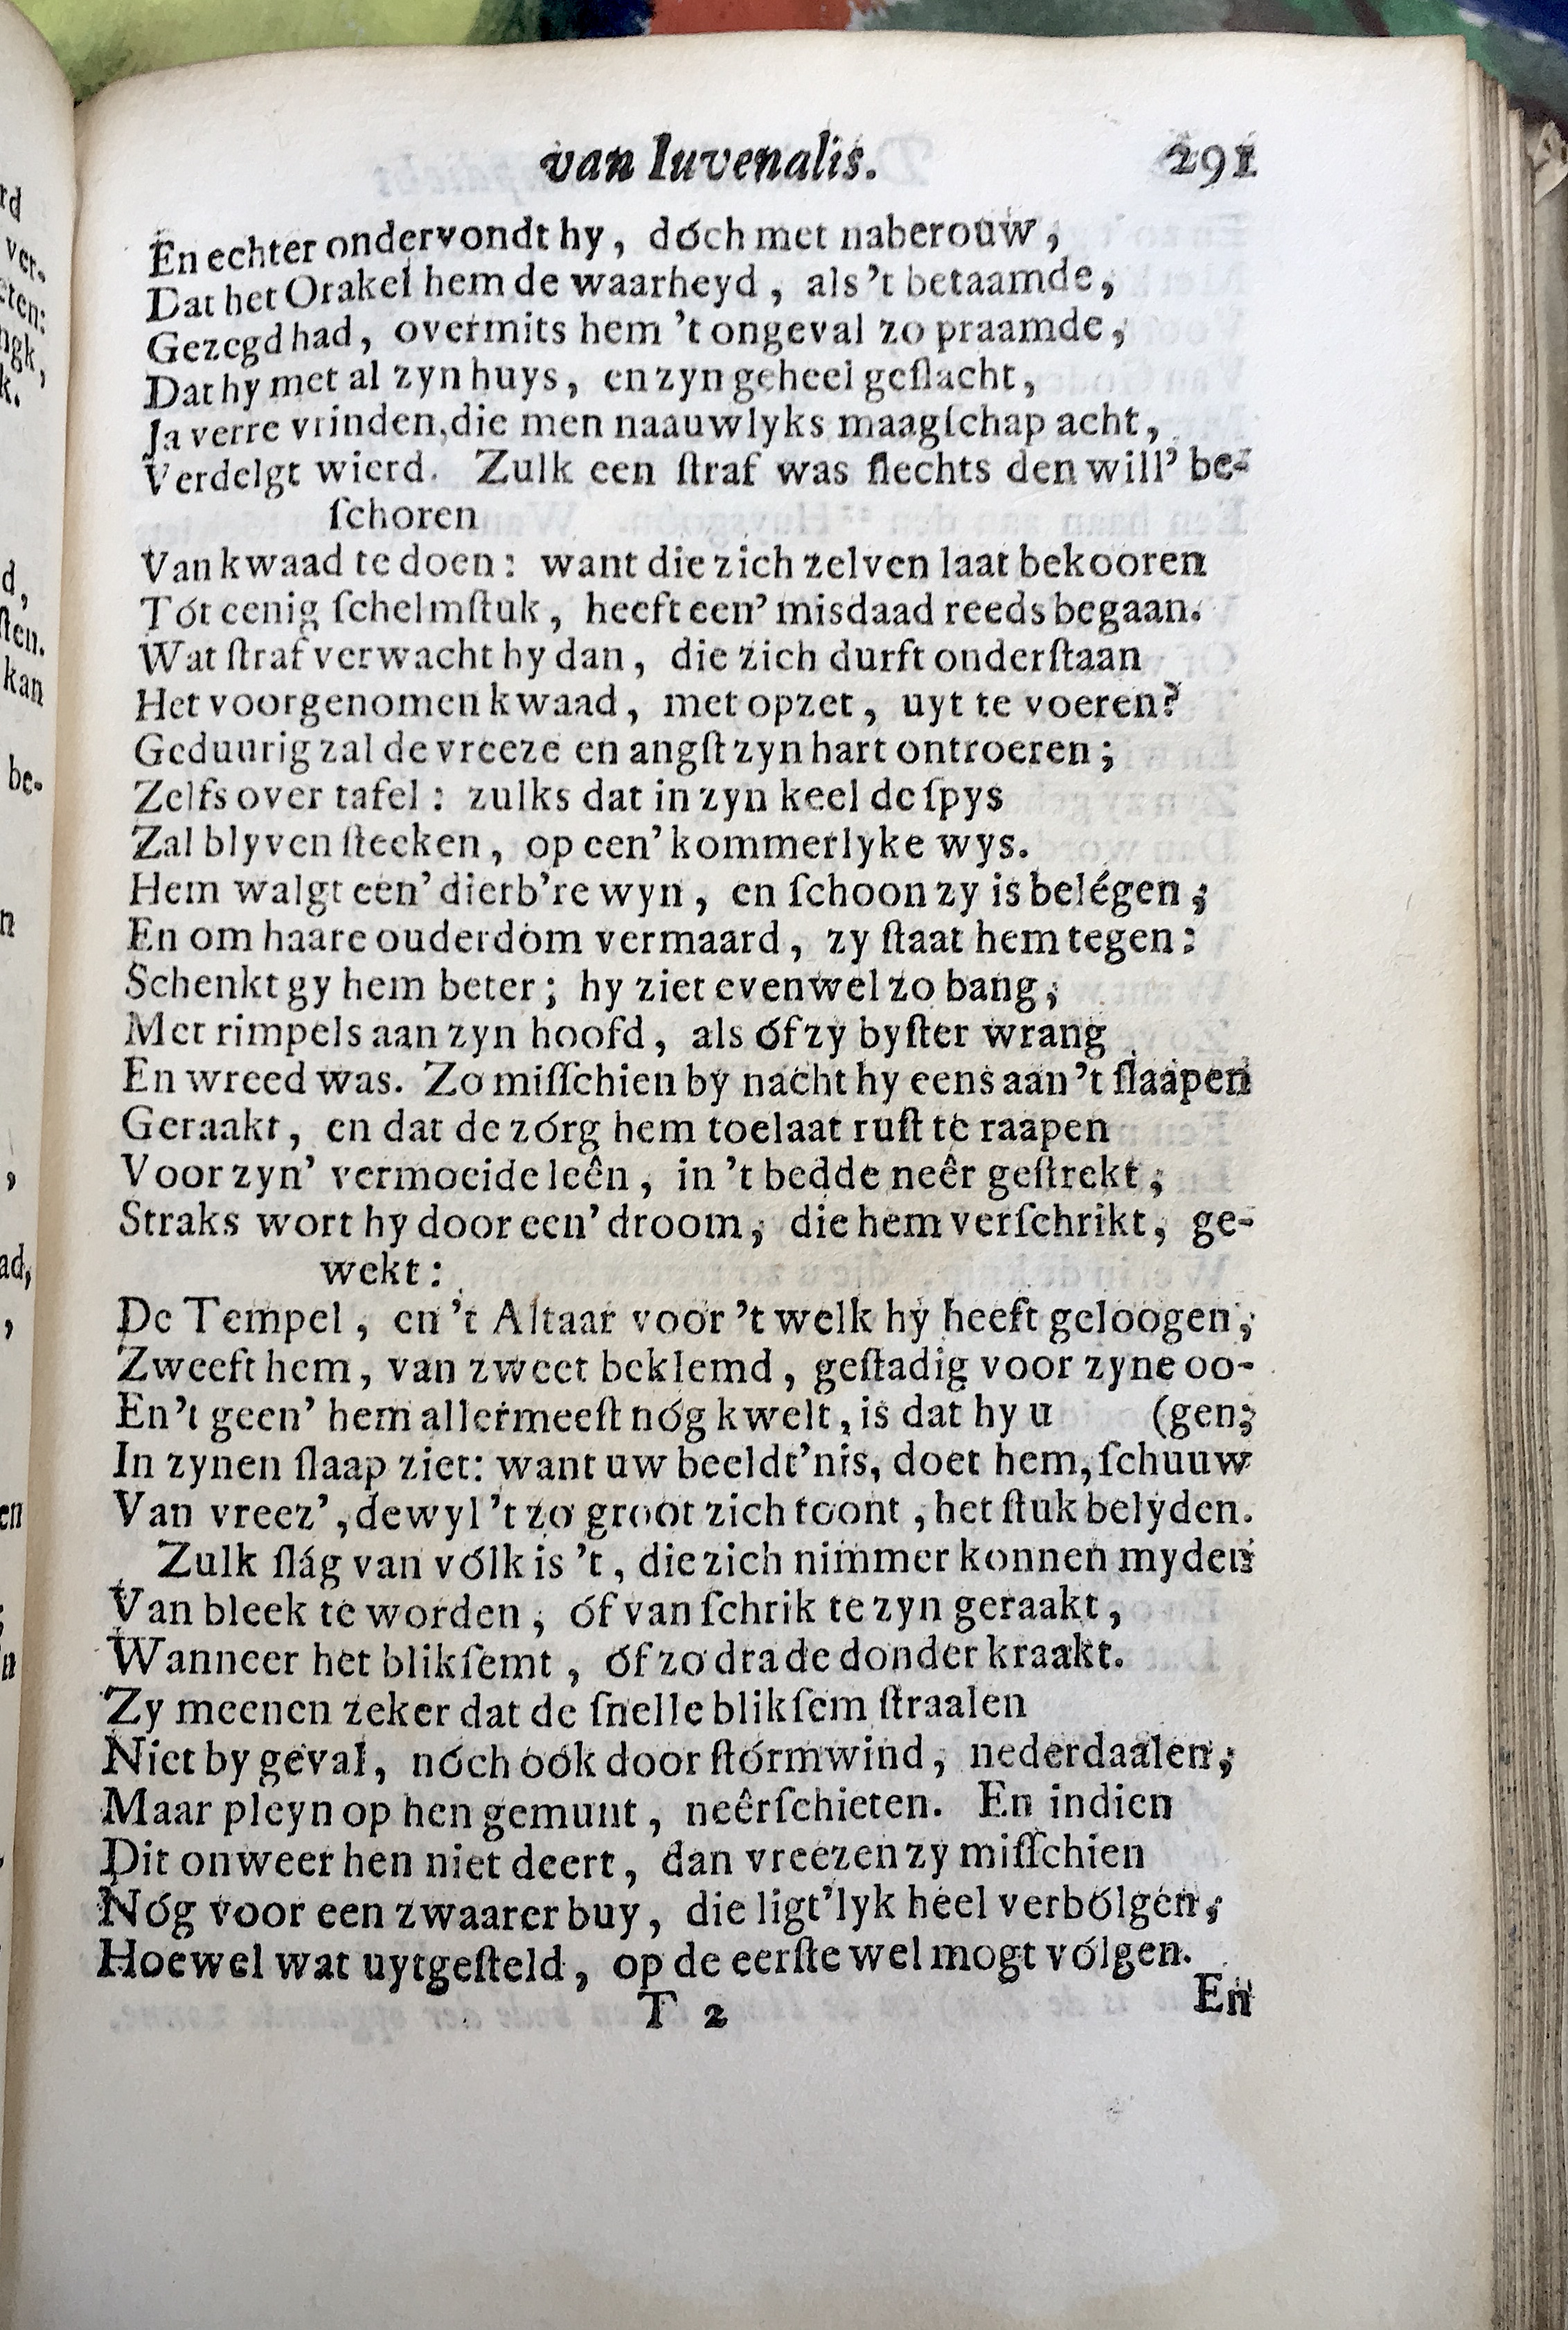 van Iuvenalis. 291
En echter ondervondt hy, dóch met naberouw,
Dat het Orakel hem de waarheyd, als 't betaamde,
Gezegd had, overmits hem 't ongeval zo praamde,
Dat hy met al zyn huys, en zyn geheel geſlacht,
Ja verre vrinden, die men naauwlyks maagſchap acht,
Verdelgt wierd. Zulk een ſtraf was ſlechts den will' be-
ſchoren
Van kwaad te doen: want die zich zelven laat bekooren
Tót eenig ſchelmſtuk, heeft een' misdaad reeds begaan.
Wat ſtraf verwacht hy dan, die zich durft onderſtaan
Het voorgenomen kwaad, met opzet, uyt te voeren?
Geduurig zal de vreeze en angſt zyn hart ontroeren;
Zelfs over tafel: zulks dat in zyn keel de ſpys
Zal blyven ſteeken, op een' kommerlyke wys.
Hem walgt een' dierb're wyn, en ſchoon zy is belégen,
En om haare ouderdom vermaard, zy ſtaat hem tegen:
Schenkt gy hem beter; hy ziet evenwel zo bang,
Met rimpels aan zyn hoofd, als óf zy byſter wrang
En wreed was. Zo miſſchien by nacht hy eens aan 't ſlaapen
Geraakt, en dat de zórg hem toelaat ruſt te raapen
Voor zyn' vermoeide leên, in 't bedde neêr geſtrekt,
Straks wort hy door een' droom, die hem verſchrikt, ge-
wekt:
De Tempel, en 't Altaar voor 't welk hy heeft geloogen,
Zweeft hem, van zweet beklemd, geſtadig voor zyne oo-
En 't geen' hem allermeeſt nóg kwelt, is dat hy u (gen;
In zynen ſlaap ziet: want uw beeldt'nis, doet hem, ſchuuw
Van vreez', dewyl 't zo groot zich toont, het ſtuk belyden.
Zulk ſlág van vólk is 't, die zich nimmer konnen myden
Van bleek te worden, óf van ſchrik te zyn geraakt,
Wanneer het blikſemt, óf zo dra de donder kraakt.
Zy meenen zeker dat de ſnelle blikſem ſtraalen
Niet by geval, nóch oók door ſtórmwind, nederdaalen,
Maar pleyn op hen gemunt, neêrſchieten. En indien
Dit onweer hen niet deert, dan vreezen zy miſſchien
Nóg voor een zwaarer buy, die ligt'lyk heel verbólgen,
Hoewel wat uytgeſteld, op de eerſte wel mogt vólgen.
T 2 En